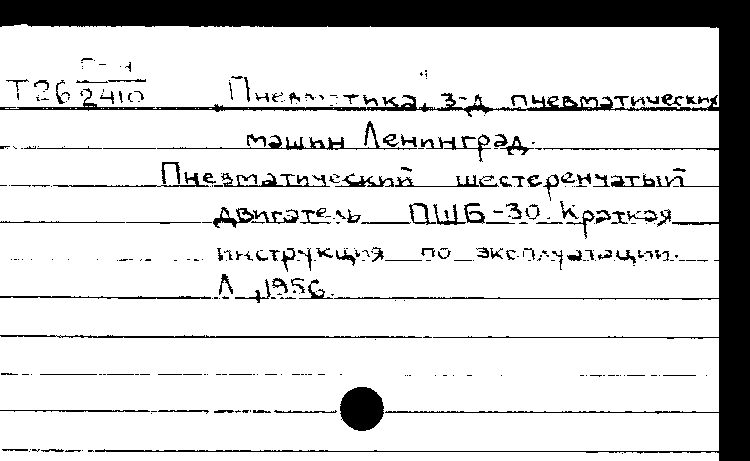 Т26 2410 „Пневматика", з-д пневматических
машин Ленинград.
Пневматический шестеренчатый
двигатель ПШБ-30. Краткая
инструкция по эксплуатации.
Л., 1956.